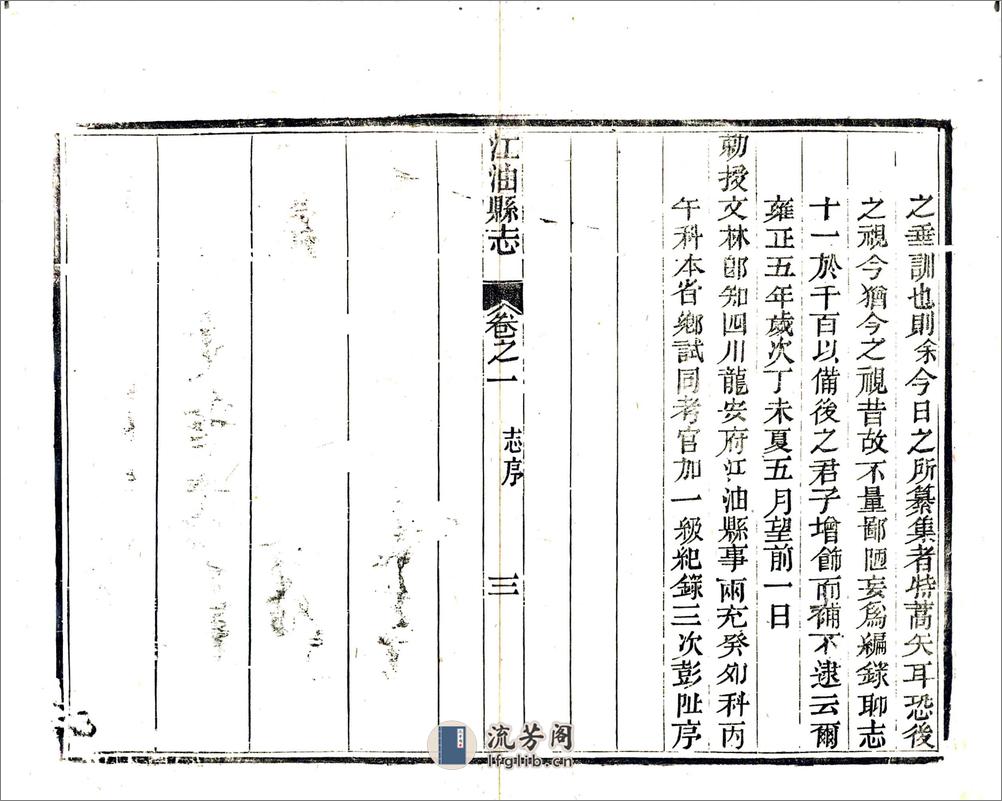 之垂訓也則余今日之所纂集者特蒿矢耳恐後
之視今猶今之視昔故不量鄙陋妄爲編錄聊志
十一於千百以備後之君子增飾而補不逮云爾
雍正五年歲次丁未夏五月望前一日
勅授文林郎知四川龍安府江油縣事兩充癸卯科丙
午科本省鄉試同考官加一級紀錄三次彭阯序
江油縣志 卷之一 志序 三
流芳阁
lfglib.cn